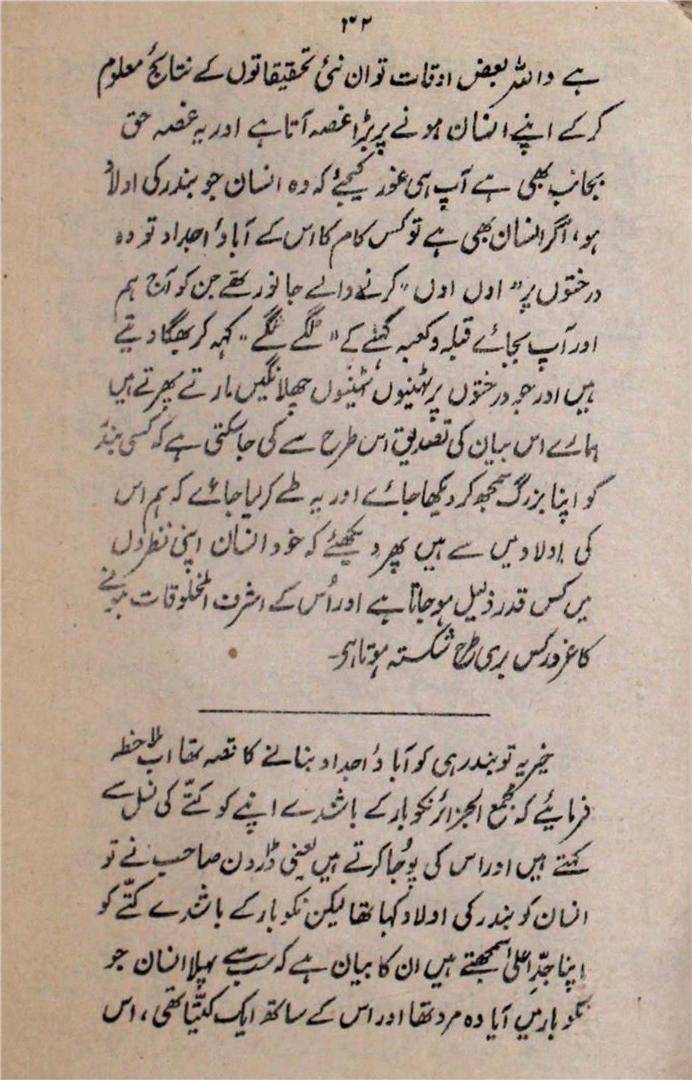 ۴۲
ہے واللہ بعض اوقات تو ان نئی تحقیقاتوں کے نتائج معلوم
کرکے اپنے انسان ہونے پر بڑا غصہ آتا ہے اور یہ غصہ حق
بجانب بھی ہے آپ ہی غور کیجئے کہ وہ انسان جو بندر کی اولاد
ہو، اگر انسان بھی ہے تو کس کام کا اس کے آباؤ اجداد تو وہ
درختوں پر "اوں اوں" کرنے والے جانور تھے جن کو آج ہم
اور آپ بجائے قبلہ و کعبہ کہنے کے "لگے لگے" کہہ کر بھگا دیتے
ہیں اور جو درختوں پر ٹہنیوں ٹہنیوں چھلانگیں مارتے پھرتے ہیں
ہمارے اس بیان کی تصدیق اس طرح سے کی جاسکتی ہے کہ کسی بندر
کو اپنا بزرگ سمجھ کر دیکھا جائے اور یہ طے کرلیا جائے کہ ہم اس
کی اولاد میں سے ہیں پھر دیکھئے کہ خود انسان اپنی نظروں
میں کس قدر ذلیل ہوجاتا ہے اور اُس کے اشرف المخلوقات ہونے
کا غرور کس بری طرح شکستہ ہوتا ہی۔
خیر یہ تو بندر ہی کو آباؤ اجداد بنانے کا قصہ تھا اب ملاحظہ
فرمایئے کہ مجمع الجزائر نکوبار کے باشندے اپنے کو کتّے کی نسل سے
کہتے ہیں اور اس کی پوجا کرتے ہیں یعنی ڈارون صاحب نے تو
انسان کو بندر کی اولاد کہا تھا لیکن نکوبار کے باشندے کتّے کو
اپنا جدِّ اعلیٰ سمجھتے ہیں ان کا بیان ہے کہ سب سے پہلا انسان جو
نکوبار میں آیا وہ مرد تھا اور اس کے ساتھ ایک کتیّا تھی، اس